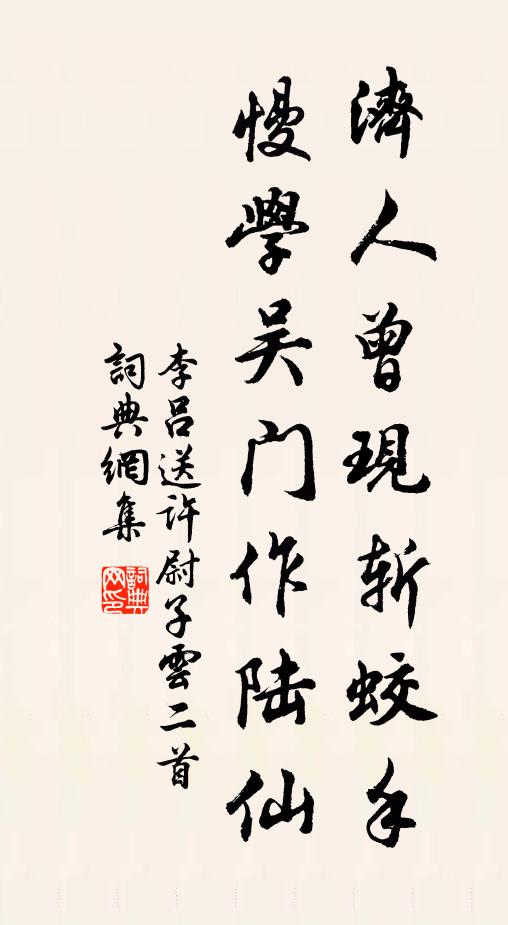 濟人曾現斬蛟手
慢學吴门作陆仙
李吕送許尉子雲二首
詞典網集
詞典网印